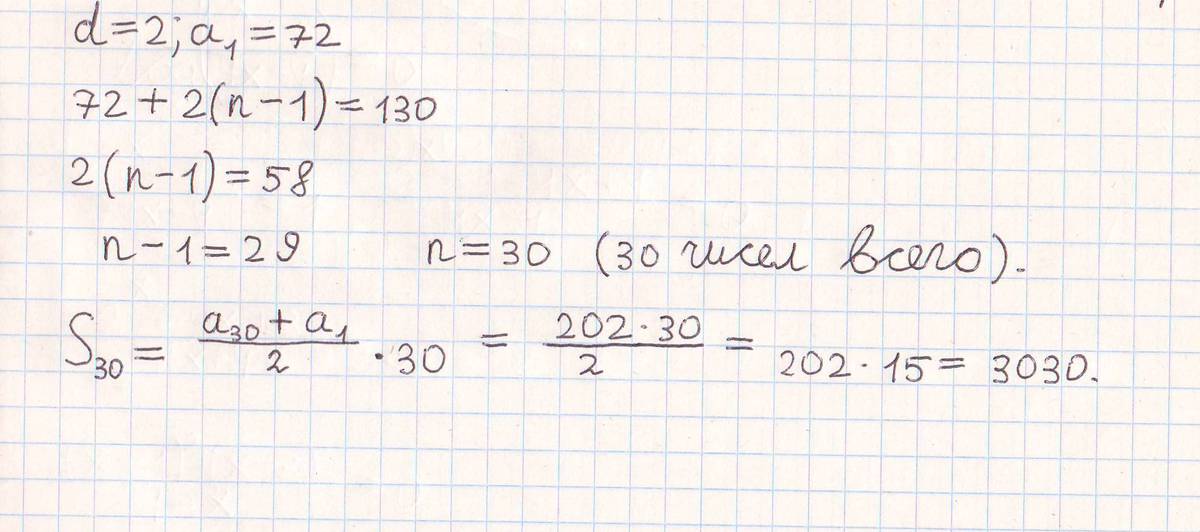 d=2; a₁=72
72+2(n-1)=130
2(n-1)=58
n-1=29 n=30 (30 чисел всего).
S₃₀= (a₃₀+a₁)/2 ·30 = (202·30)/2 = 202·15= 3030.